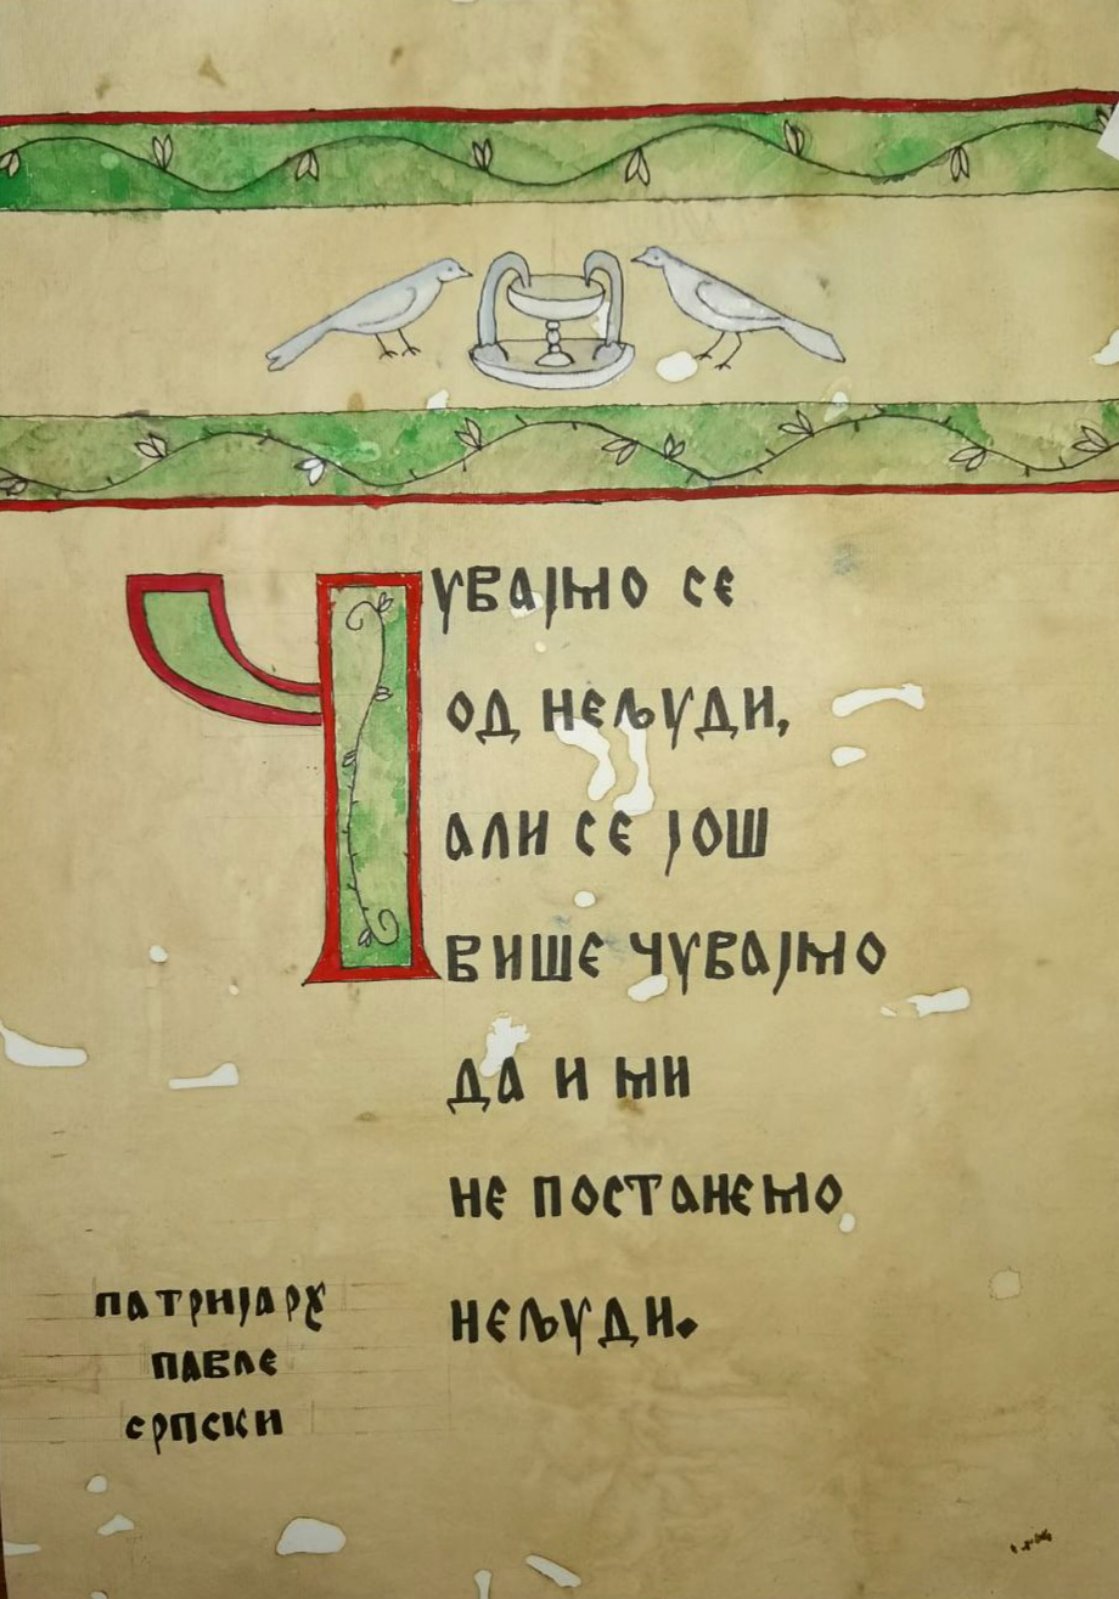 Чувајмо се
од нељуди,
али се још
више чувајмо
да и ми
не постанемо
нељуди.
патријарх
павле
српски